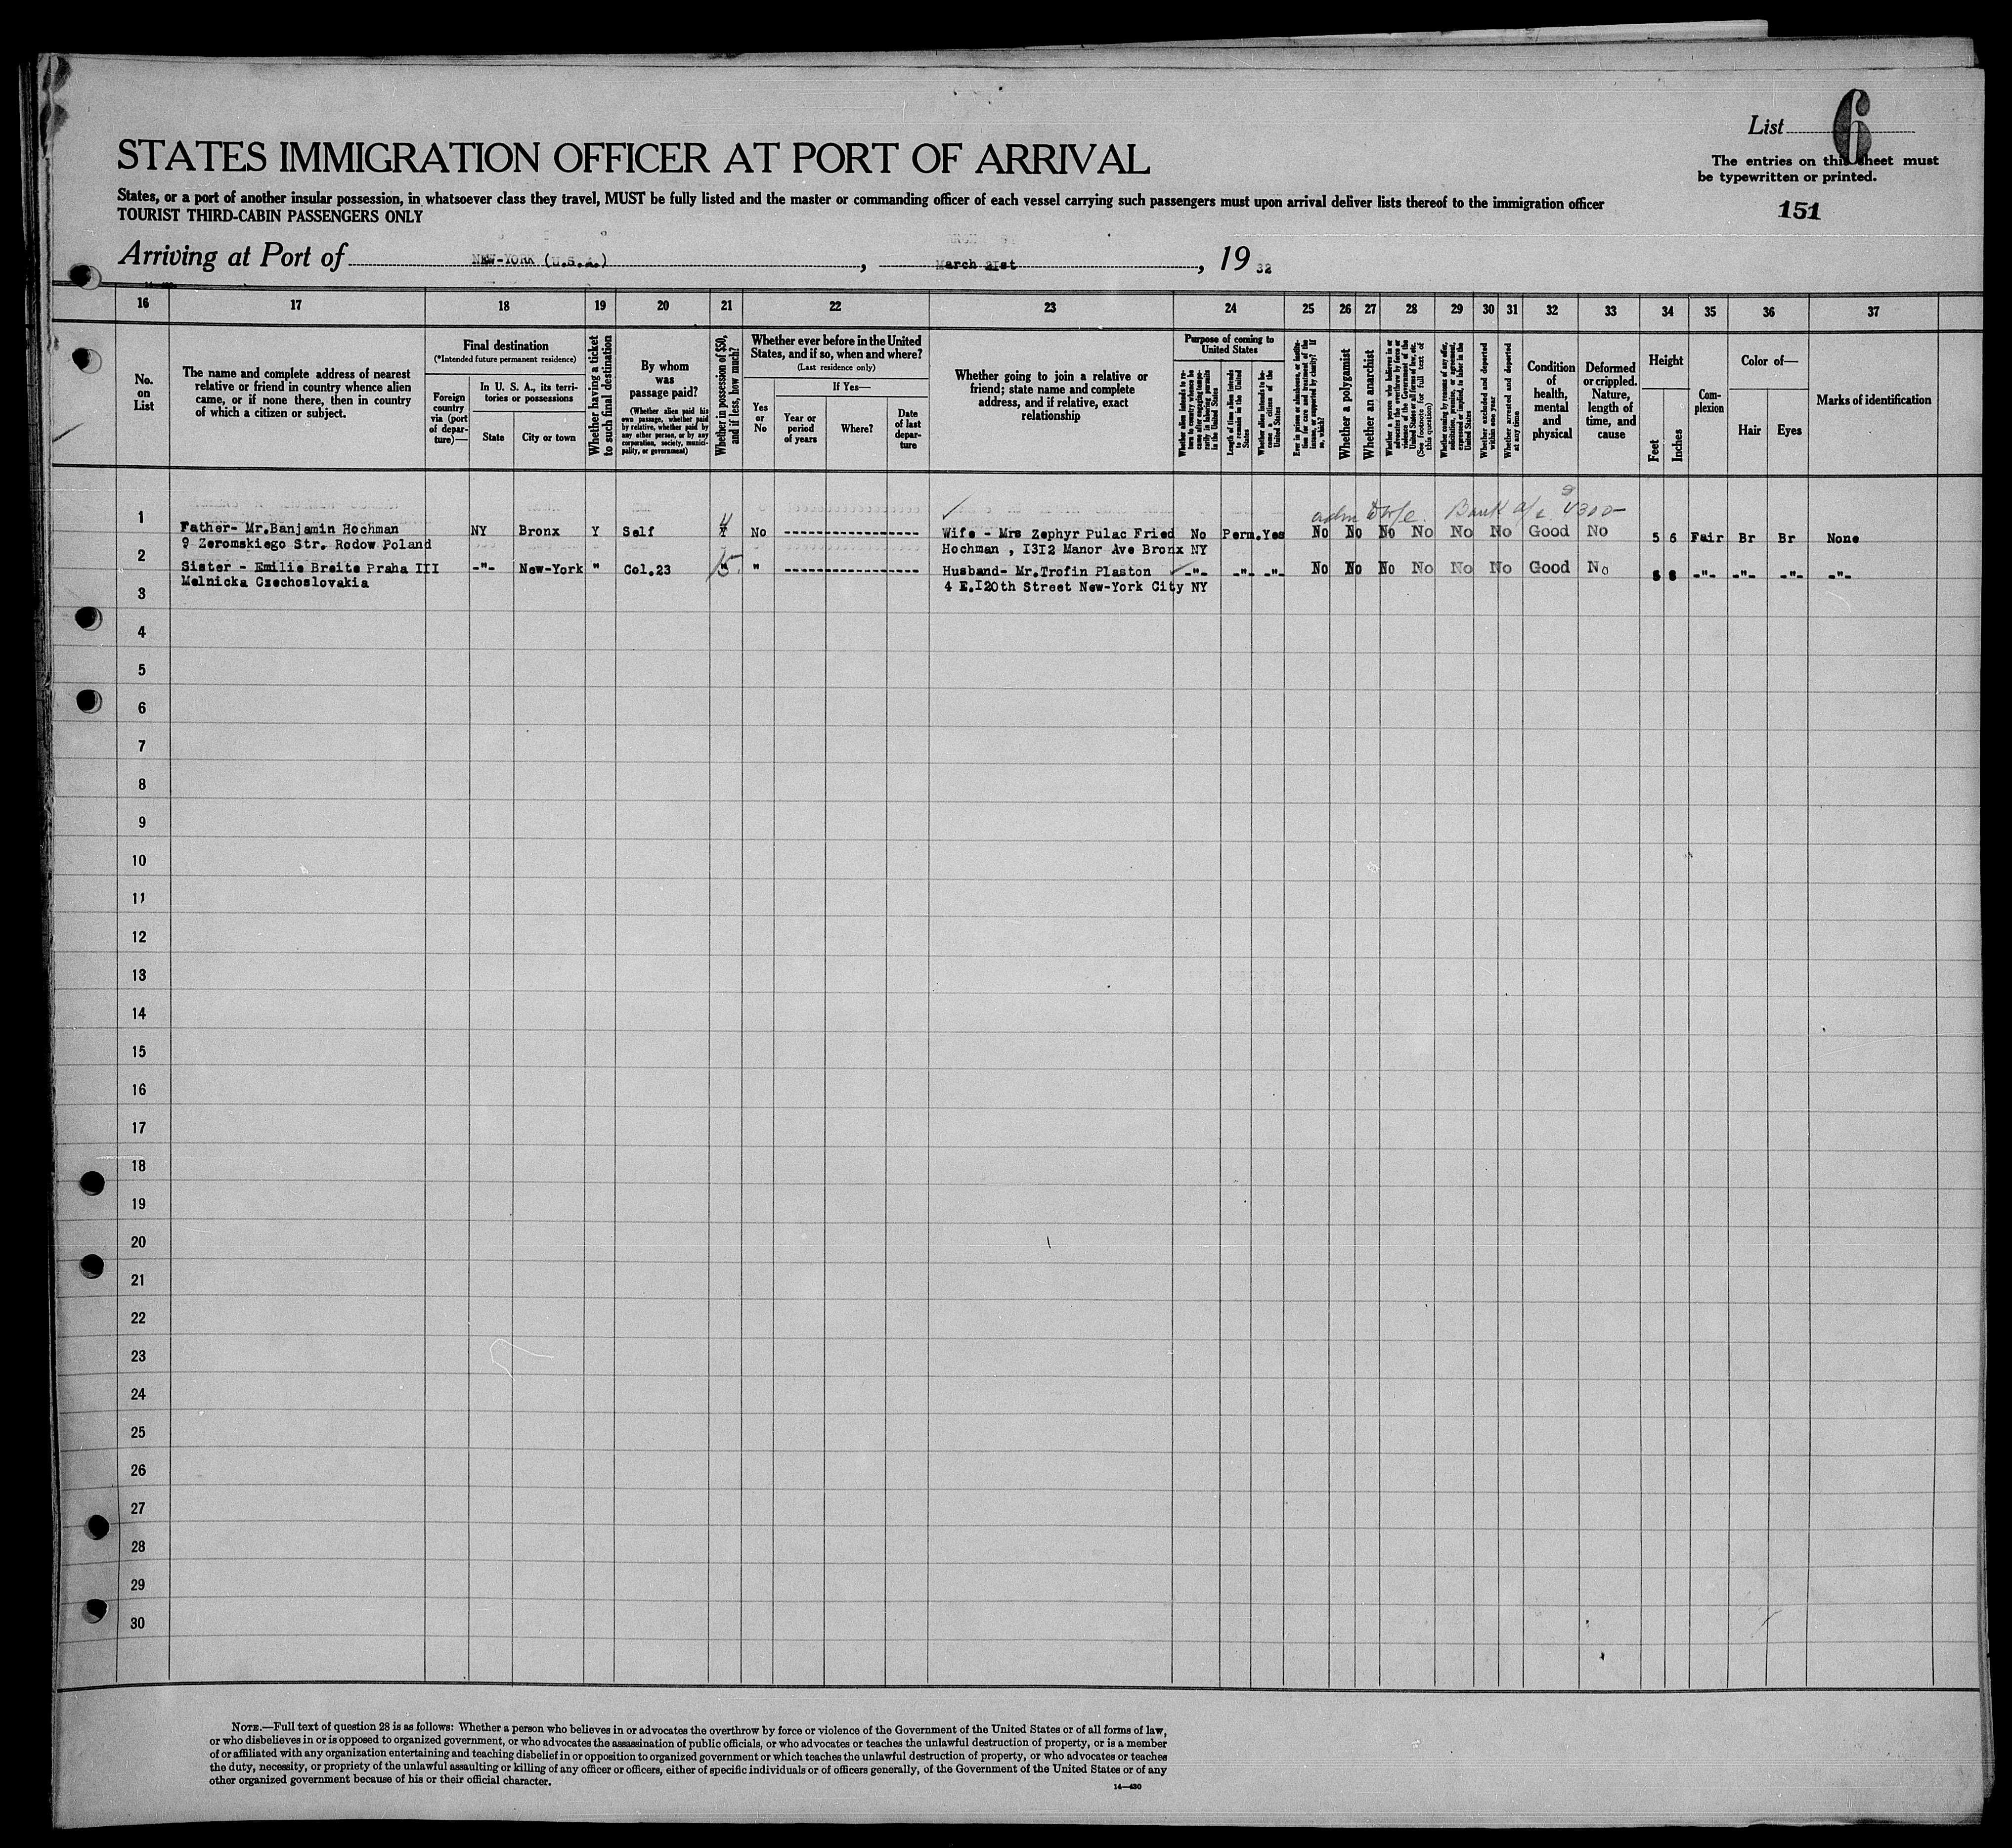 List 6
STATES IMMIGRATION OFFICER AT PORT OF ARRIVAL
The entries on this sheet must
be typewritten or printed.
States, or a port of another insular possession, in whatsoever class they travel, MUST be fully listed and the master or commanding officer of each vessel carrying such passengers must upon arrival deliver lists thereof to the immigration officer
TOURIST THIRD-CABIN PASSENGERS ONLY
151
Arriving at Port of NEW-YORK (U.S.A.), March 21st, 1932
16 17 18 19 20 21 22 23 24 25 26 27 28 29 30 31 32 33 34 35 36 37
No.
on
List
The name and complete address of nearest
relative or friend in country whence alien
came, or if none there, then in country
of which a citizen or subject.
Final destination
(*Intended future permanent residence)
Foreign
country
via (port
of depar-
ture)—
In U. S. A., its terri-
tories or possessions
State
City or town
Whether having a ticket
to such final destination
By whom
was
passage paid?
(Whether alien paid his
own passage, whether paid
by relative, whether paid by
any other person, or by any
corporation, society, munici-
pality, or government)
Whether in possession of $50,
and if less, how much?
Whether ever before in the United
States, and if so, when and where?
(Last residence only)
Yes
or
No
If Yes—
Year or
period
of years
Where?
Date
of last
depar-
ture
Whether going to join a relative or
friend; state name and complete
address, and if relative, exact
relationship
Purpose of coming to
United States
Whether alien intends to re-
turn to country whence he
came after engaging tempo-
rarily in laboring pursuits
in the United States
Length of time alien intends
to remain in the United
States
Whether alien intends to be-
come a citizen of the
United States
Ever in prison or almshouse, or institu-
tion for care and treatment of the
insane, or supported by charity? If
so, which?
Whether a polygamist
Whether an anarchist
Whether a person who believes in or
advocates the overthrow by force or
violence of the Government of the
United States or all forms of law, etc.
(See footnote for full text of
this question)
Whether coming by reason of any offer,
solicitation, promise, or agreement,
expressed or implied, to labor in the
United States
Whether excluded and deported
within one year
Whether arrested and deported
at any time
Condition
of
health,
mental
and
physical
Deformed
or crippled.
Nature,
length of
time, and
cause
Height
Feet
Inches
Com-
plexion
Color of—
Hair
Eyes
Marks of identification
Bank
1
Father- Mr.Banjamin Hochman NY Bronx Y Self No Wife - Mrs Zephyr Pulac Fried No Perm. Yes No No No No No No Good No 5 6 Fair Br Br None
9 Zeromskiego Str. Rodow Poland Hochman , I3I2 Manor Ave Bronx NY
2
Sister - Emilie Breite Praha III -"- New-York " Col.23 15 " Husband- Mr.Trofin Plaston -"- -"- -"- No No No No No No Good No -"- -"- -"- -"-
Melnicka Czechoslovakia 4 E.I20th Street New-York City NY
3
4
5
6
7
8
9
10
11
12
13
14
15
16
17
18
19
20
21
22
23
24
25
26
27
28
29
30
NOTE.—Full text of question 28 is as follows: Whether a person who believes in or advocates the overthrow by force or violence of the Government of the United States or of all forms of law,
or who disbelieves in or is opposed to organized government, or who advocates the assassination of public officials, or who advocates or teaches the unlawful destruction of property, or is a member
of or affiliated with any organization entertaining and teaching disbelief in or opposition to organized government or which teaches the unlawful destruction of property, or who advocates or teaches
the duty, necessity, or propriety of the unlawful assaulting or killing of any officer or officers, either of specific individuals or of officers generally, of the Government of the United States or of any
other organized government because of his or their official character.
14—430